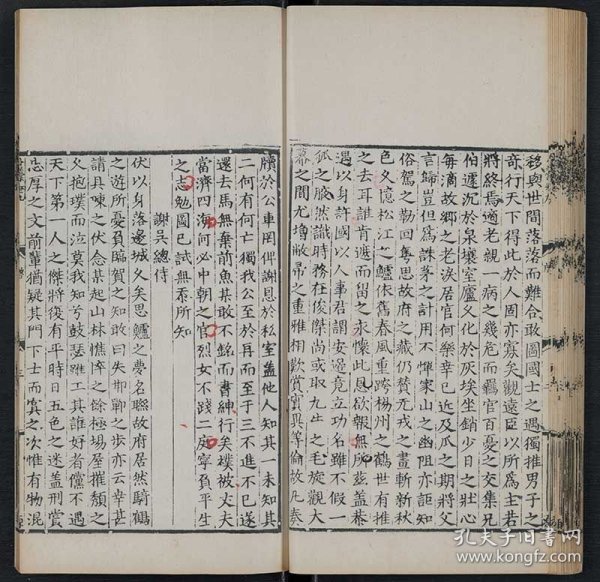 移與世間落落而難合敢圖國士之遇獨推男子之
奇行天下得此於人固亦寡矣觀遠臣以所為主若
將終焉適老親一病之幾危而羈官百憂之交集兄
伯遽沉於泉壤室廬又化於灰埃銷少日之壯心
每滴故鄉之老淚居官何樂幸已近及瓜之期將父
言歸豈但爲誅茅之計用不憚家山之幽阻亦詎知
俗駕之勒回粤思故府之藏仍替无戎之畫斬新秋
色久憶松江之鱸依舊春風重跨楊州之鶴世有推
之去耳誰肯遞而留之永懷此恩欲報無所茲蓋恭
遇以身許國以人事君謂安邊竟立功名雖不假一
狐之腋然識時務在俊傑尚或取九牛之毛旋觀大
幕之間尤增敝帚之重雅相歡賞實異等倫故凡奏
牘於公車罔俾謝恩於私室蓋他人知其一未知其
二何有何亡獨我公至於再而至於三不進不已遂
還去馬無棄前魚某敢不銘而書紳行矣襆被丈夫
當濟四海何必中朝之官烈女不踐二庭寧負平生
之志勉圖已試無忝所知
謝吳總侍
伏以身落邊城久矣思鱸之夢名聯故府居然騎鶴
之遊所憂負臨賀之知敢曰失邯鄲之步亦云幸甚
請具陳之伏念某起山林憔悴之餘極場屋摧頹之
久抱璞而泣莫我知兮鼓瑟雖工其誰好者儻不遇
天下第一人之傑將復有平時日五色之迷蓋刑賞
忠厚之文前輩猶疑其門下士而寞之次惟有物混
孔夫子旧书网
www.kongfz.com